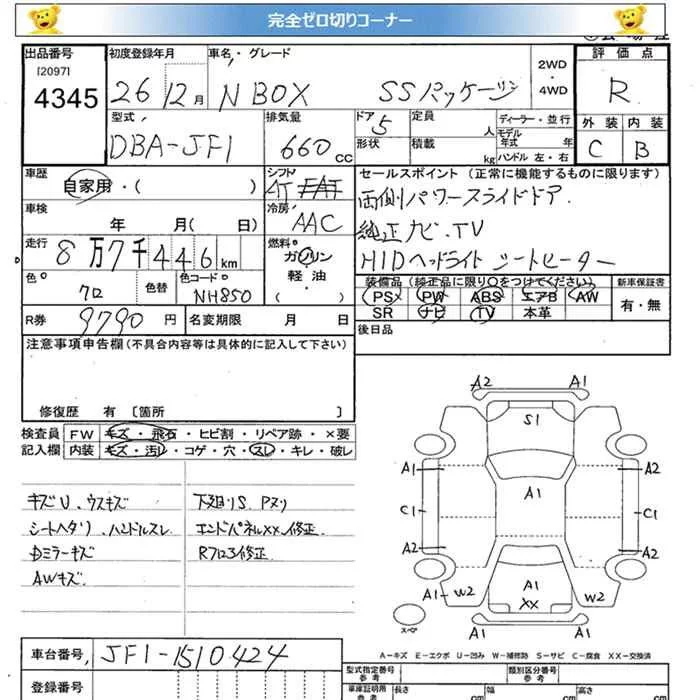 完全ゼロ切りコーナー
出品番号 初度登録年月 車名・グレード 評価点
[2097] 2WD・4WD
4345 26 12月 N BOX SSパッケージ R
型式 排気量 ドア 定員 人 ディーラー・並行 外装 内装
DBA-JF1 660cc 5 形状 積載 kg モデル年式 年 ハンドル 左・右 C B
車歴 シフト セールスポイント(正常に機能するものに限ります)
自家用・( ) AT FAT 両側パワースライドドア.
車検 年 月(日) 冷房 AAC 純正ナビ.TV
走行 8万7千446km 燃料 ガソリン HIDヘッドライト シートヒーター
色 色替 色コード 軽油 装備品(純正品に限り○をつけてください) 新車保証書
クロ NH850 PS PW ABS エアB AW 有・無
R券 9790円 名変期限 月 日 SR ナビ TV 本革
注意事項申告欄(不具合内容等は具体的に記入して下さい) 後日品
修復歴 有 〔箇所 〕
検査員 FW キズ・飛石・ヒビ割・リペア跡・×要
記入欄 内装 キズ・汚レ・コゲ・穴・スレ・キレ・破レ
A2 A1
S1
A1 A1 A2
C1 C1
A2 A2
A1 W2 A1 XX W2
スペア
キズU、ウスキズ 下廻りS. Pヌリ
シートヘタリ、ハンドルスレ エンドパネルXX.修正
Dミラーキズ Rフロア修正
AWキズ
A-キズ E-エクボ U-凹み W-補修跡 S-サビ C-腐食 XX-交換済
車台番号 JF1-1510424
型式指定番号 参考 類別区分番号 参考
登録番号 車庫証明用 参考 長さ cm 幅 cm 高さ cm